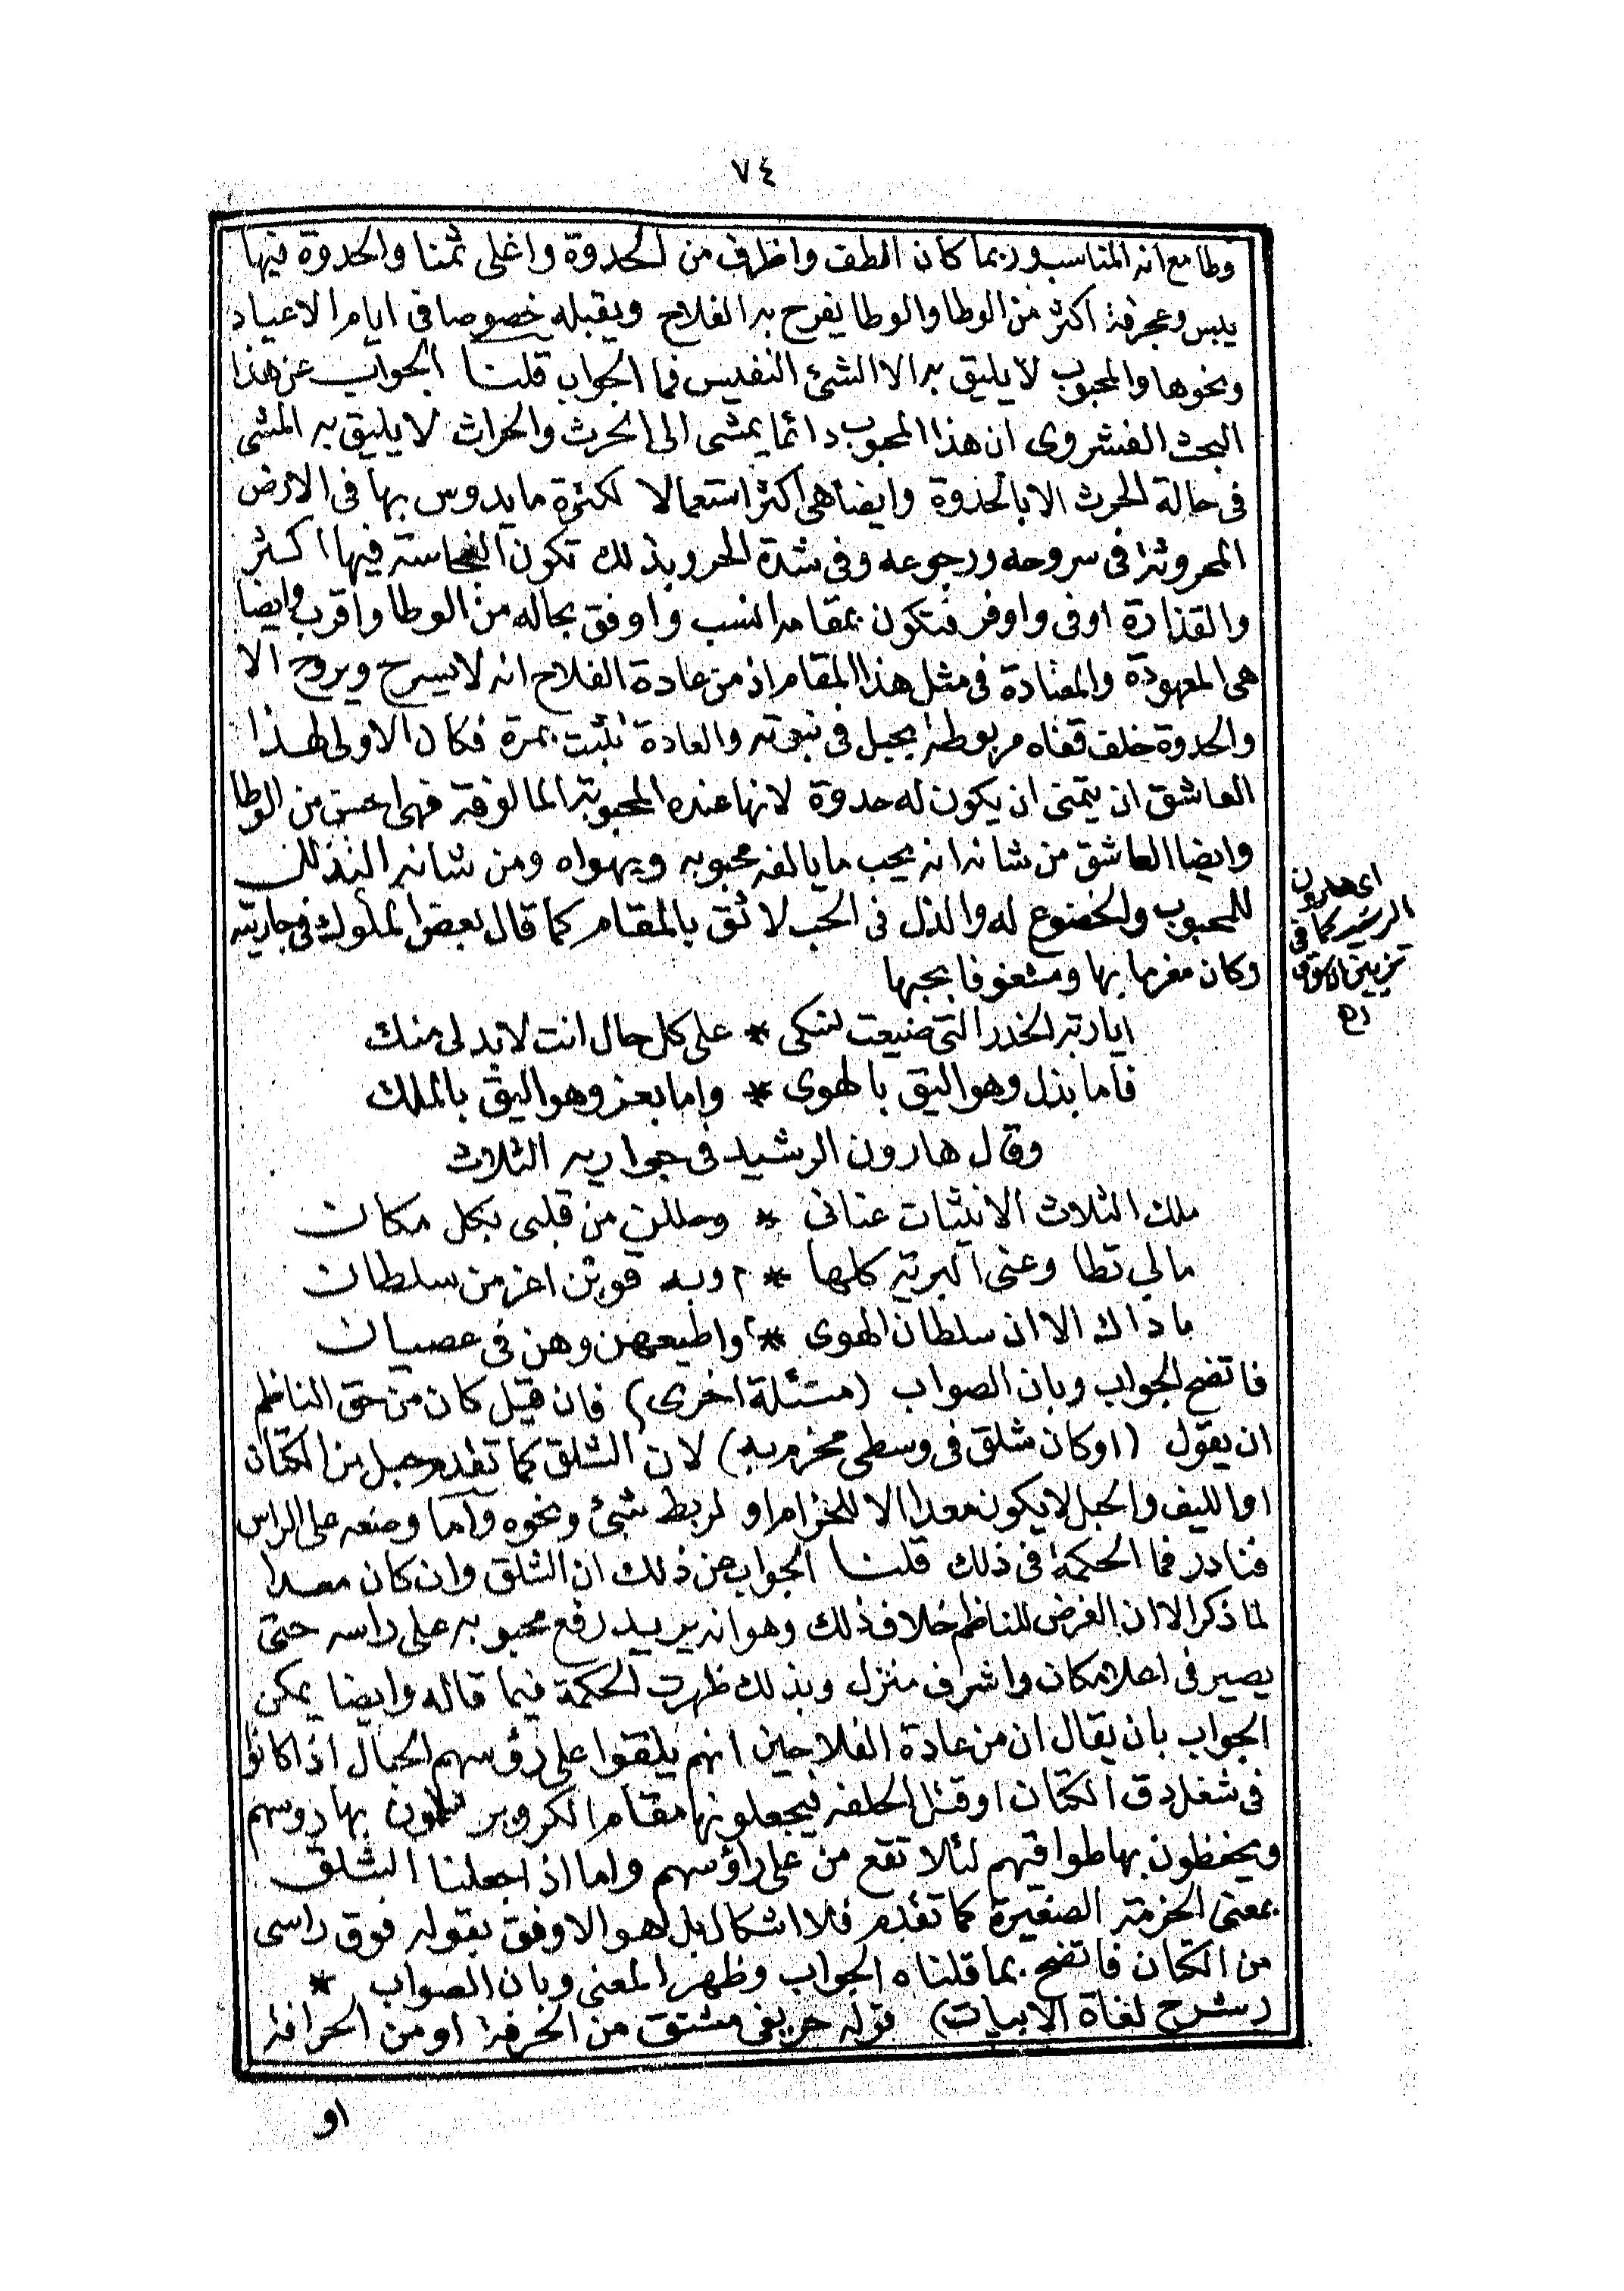 ٧٤
وطا مع انه المناسب وربما كان الطف واظرف من الحدوة واغلى ثمنا والحدوة فيها
يبس وعجرفة اكثر من الوطا والوطا يفرح به الفلاح ويقبله خصوصا فى ايام الاعياد
ونحوها والمحبوب لا يليق به الا الشئ النفيس فما الجواب قلنا الجواب عن هذا
البحث الفشروى ان هذا المحبوب دائما يمشى الى الحرث والحراث لا يليق به المشى
فى حالة الحرث الا بالحذوة وايضا هى اكثر استعمالا لكثرة ما يدوس بها فى الارض
المحروثة فى سروحه ورجوعه وفى شدة الحر وبذلك تكون النجاسة فيها اكثر
والقذارة اوفى واوفر فتكون بمقامه انسب واوفق بحاله من الوطا واقرب وايضا
هى المعهودة والمعتادة فى مثل هذا المقام اذ من عادة الفلاح انه لا يسرح ويروح الا
والحدوة خلف قفاه مربوطة بحبل فى نبوته والعادة تثبت بمرة فكان الاولى لهذا
العاشق ان يتمنى ان يكون له حدوة لانها عنده المحبوبة المالوفة فهى احسن من الوطا
وايضا العاشق من شانه انه يحب ما يالفه محبوبه ويهواه ومن شانه التذلل
للمحبوب والخضوع له والذل فى الحب لائق بالمقام كما قال بعض الملوك فى جاريته
وكان مغرما بها ومشغوفا بحبها
اى هارون
الرشيد كما فى
تزيين الاسواق
اه
ايا ربة الخدر التى ضيعت نسكى * على كل حال انت لا بد لى منك
فاما بذل وهو اليق بالهوى * واما بعز وهو اليق بالملك
وقال هارون الرشيد فى جواريه الثلاث
ملك الثلاث الانيثات عنانى * وحللن من قلبى بكل مكان
مالى تطاوعنى البرية كلها * وبه قوين اعز من سلطان
ما ذاك الا ان سلطان الهوى * واطيعهن وهن فى عصيان
فاتضح الجواب وبان الصواب (مسئلة اخرى) فان قيل كان من حق الناظم
ان يقول (او كان شلق فى وسطى محزم به) لان الشلق كما تقدم حبل من الكتان
او الليف والحبل لا يكون معدا الا للحزام او لربط شئ ونحوه واما وضعه على الراس
فنادر فما الحكمة فى ذلك قلنا الجواب عن ذلك ان الشلق وان كان معدا
لما ذكر الا ان الغرض للناظم خلاف ذلك وهو انه يريد رفع محبوبه على راسه حتى
يصير فى اعلا مكان واشرف منزل وبذلك ظهرت الحكمة فيما قاله وايضا يمكن
الجواب بان يقال ان من عادة الفلاحين انهم يلقوا على رؤسهم الحبال اذا كانوا
فى شغل دق الكتان او قتل الحلفه فيجعلونها مقام الكر وير بها روسهم
ويحفظون بها طواقيهم لئلا تقع من على راؤسهم واما اذا جعلنا الشلق
بمعنى الحزمة الصغيرة كما تقدم فلا اشكال بل هو الاوفق بقوله فوق راسى
من الكتان فاتضح بما قلناه الجواب وظهر المعنى وبان الصواب *
(شرح لغاة الابيات) قوله حريفى مشتق من الخرفة او من الحرافة
او